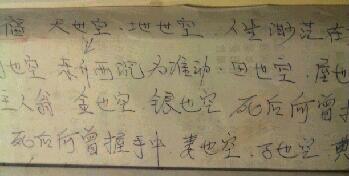 天也空、地也空、人生渺茫在
也空、来来西沉为谁动、田也空、屋也
主人翁 金也空 银也空 死后何曾握
死后何曾握手中、妻也空、子也空